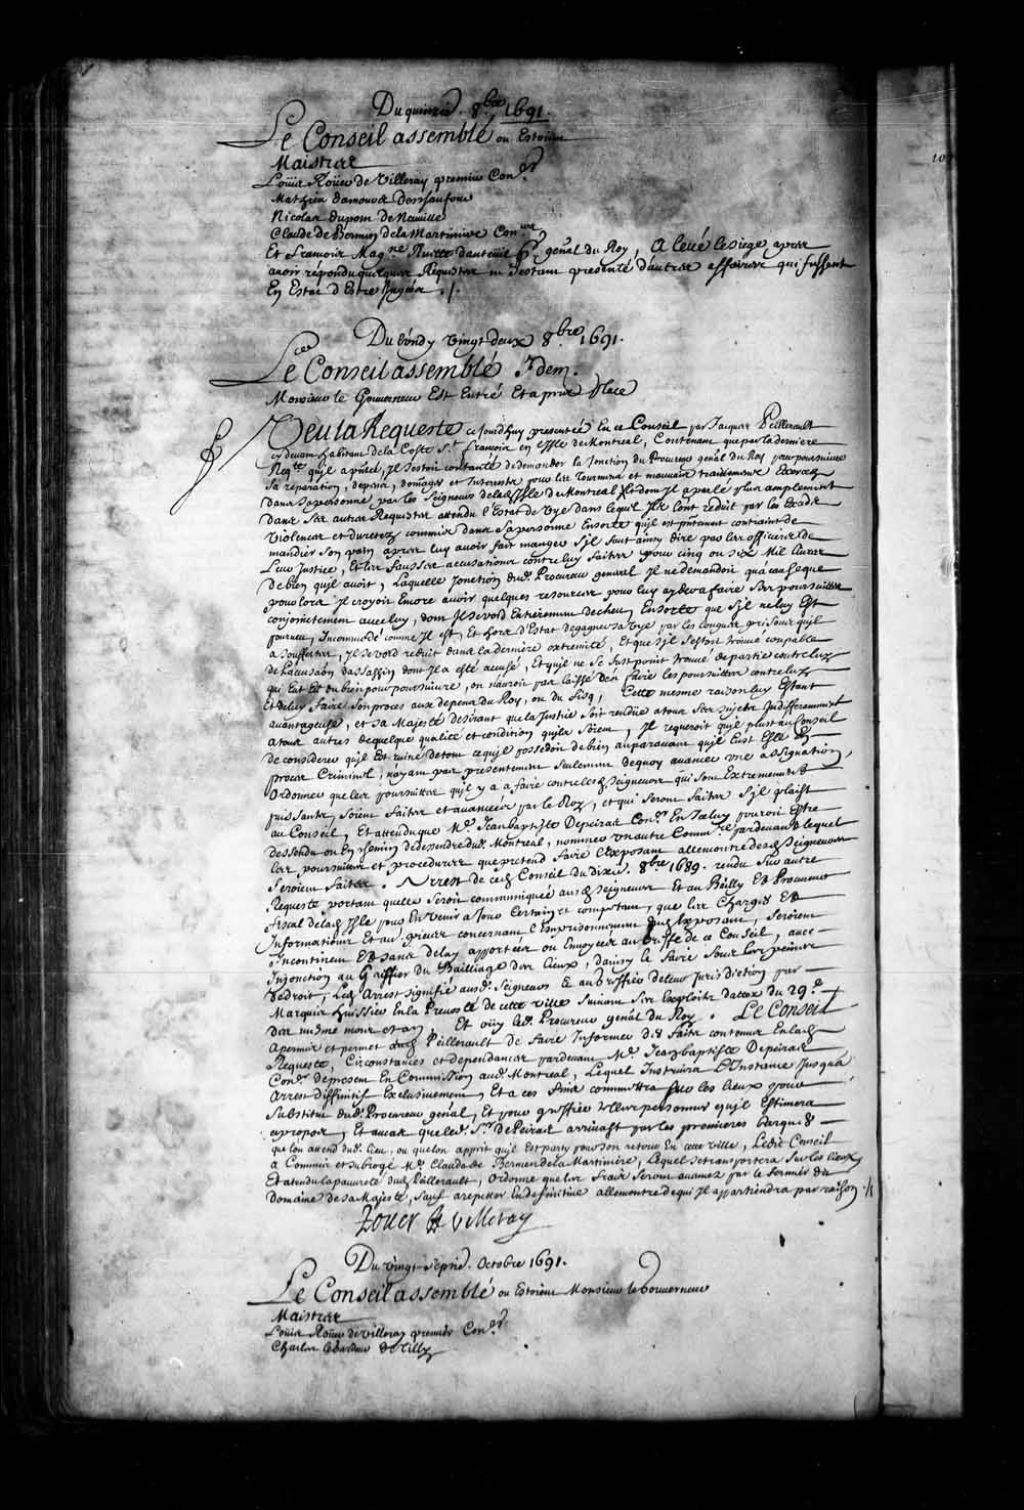 Du quinzie. 8bre 1691.
Le Conseil assemblé ou Estoient
Maistres
Loüis Roüer de Villeray premier Coner
Mathieu damours deschaufour
Nicolas dupont de Neuville
Claude de Bermen dela Martiniere Coners
Et Francois Magne Ruette dauteüil Pr genal du Roy, A levé le siege, apres
avoir répondu quelques Requestes ne sestant presenté dautres affaires qui fussent
En Estat d'Estre Jugées ./.
Du lundy vingt-deux 8bre 1691.
Le Conseil assemblé Idem.
Monsieur le Gouverneur Est Entré Et a pris place
Veu la Requeste ce jourdhuy presentée En ce Conseil par Jacques Peillerault
cy devant habitant de la Coste St. francois en Isle de Montreal, Contenant que par la derniere
Reqte qu'il a , Il s'estoit contanté de demander la Jonction du Procureur genal du Roy pour poursuivre
Sa réparation, depens, domages et Interests pour les tourmens et mauvais traittemens Exercez
dans sa personne par les Seigneurs de lad. Isle de Montreal dont Il a parlé plus amplement
dans ses autres Requestes attendu l'Estat de vye dans lequel Il s'est reduit par les
violences et duretez commises dans sa personne Ensorte qu'il est contraint de
mandier son pain apres luy avoir fait manger s'il faut ainsy dire par les officiers de
Leur Justice, Et les fausses accusations contre luy faites pour cinq ou six Mil livres
de bien qu'il avoit, Laquelle Jonction dud. Procureur general Il ne demandoit qu'à cause que
pour lors Il croyoit Encore avoir quelques resources pour luy ayder a faire ses poursuittes
conjointement avec luy, dont Il se void Extremement decheu, Ensorte que s'il ne luy Est
pourveu, Incommodé comme Il est, Et hors d'Estat de gagner sa vye par les longues prisons qu'il
a souffertes, Il se void reduit dans la derniere extremité, Et que s'il s'estoit trouvé coupable
de l'accusaon d'assassin dont Il a esté accusé, Et qu'il ne se fust point trouvé de partie contre luy
qui Eut Eu du bien pour poursuivre, on n'auroit pas laissé d'en faire les poursuittes contre luy
Et de luy faire son proces aux depens du Roy, ou du fisq, Cette mesme raison luy Estant
avantageuse, et sa Majesté desirant que la Justice soit rendüe a tous ses sujets Indifferemment
a tous autres de quelque qualité et condition qu'ils soient, Il requeroit qu'il plust au Conseil
de considerer qu'il Est ruiné de tout ce qu'il possedoit de bien auparavant qu'il Eust Esté En
proces Criminel, n'ayant pas presentement seulement de quoy avancer une assignation,
Ordonner que les poursuittes qu'il y a a faire contre lesd. Seigneurs qui sont Extremement
puissants, soient faites et avancées par le Roy, et qui seront faites s'il plaist
au Conseil, Et attendu que Me. Jean baptiste Depeiras Coner En Iceluy pouroit Estre
dessendu ou En chemin de dessendre dud. Montreal, nommer un autre Commre. pardevant lequel
les poursuittes et procedures que pretend faire l'Exposant allencontre desd. Seigneurs
seroient faites. Arrest de ced. Conseil du dixie. 8bre 1689. rendu sur autre
Requeste portant quelle seroit communiquée ausd. Seigneurs Et au Bailly Et Procureur
fiscal de lad. Isle pour En venir a jour Certain et competant, que les Charges Et
Informations Et au. pieces concernant l'Emprisonnement dud. Exposant, seroient
Incontinent Et sans delay apportées ou Envoyées au Greffe de ce Conseil, avec
Injonction au Greffier du Bailliage des lieux, d'ainsy le faire sous les peines
de droit, Led. Arrest signifié ausd. Seigneurs & au Greffier de leur Jurisdiction par
Marquis huissier En la Prevosté de cette ville suivant ses Exploits dattez du 29e.
des mesme mois et an, Et oüy led. Procureur genal du Roy. Le Conseil
a permis et permet aud. Peillerault de faire Informer des faits contenus En lad.
Requeste, Circonstances et dependances pardevant Me. Jean baptiste Depeiras
Coner. de present En Commission aud. Montreal, Lequel Instruira l'Instance Jusqu'à
Arrest diffinitif Exclusivement, Et a ces fins commettra sur les lieux pour
Substitut dud. Procureur genal, Et pour greffier telles personnes qu'il Estimera
apropos, Et au cas que led. Sr. de Peiras arrivast par les premieres barques
que l'on attend dud. lieu, ou que l'on apprit qu'il est party pour son retour En cette ville, Ledit Conseil
a Commis et subrogé Me. Claude de Bermen de la Martiniere, Lequel se transportera sur les lieux,
Et attendu la pauvreté dud. Peillerault, Ordonne que les Frais seront avancez par le Fermier du
Domaine de sa Majesté, sauf a repeter En definitive allencontre de qui Il appartiendra par raison ./.
Roüer de Villeray
Du vingt-septie. Octobre 1691.
Le Conseil assemblé ou Estoient Monsieur le Gouverneur
Maistres
Loüis Roüer de Villeray premier Coner
Charles le Gardeur de Tilly